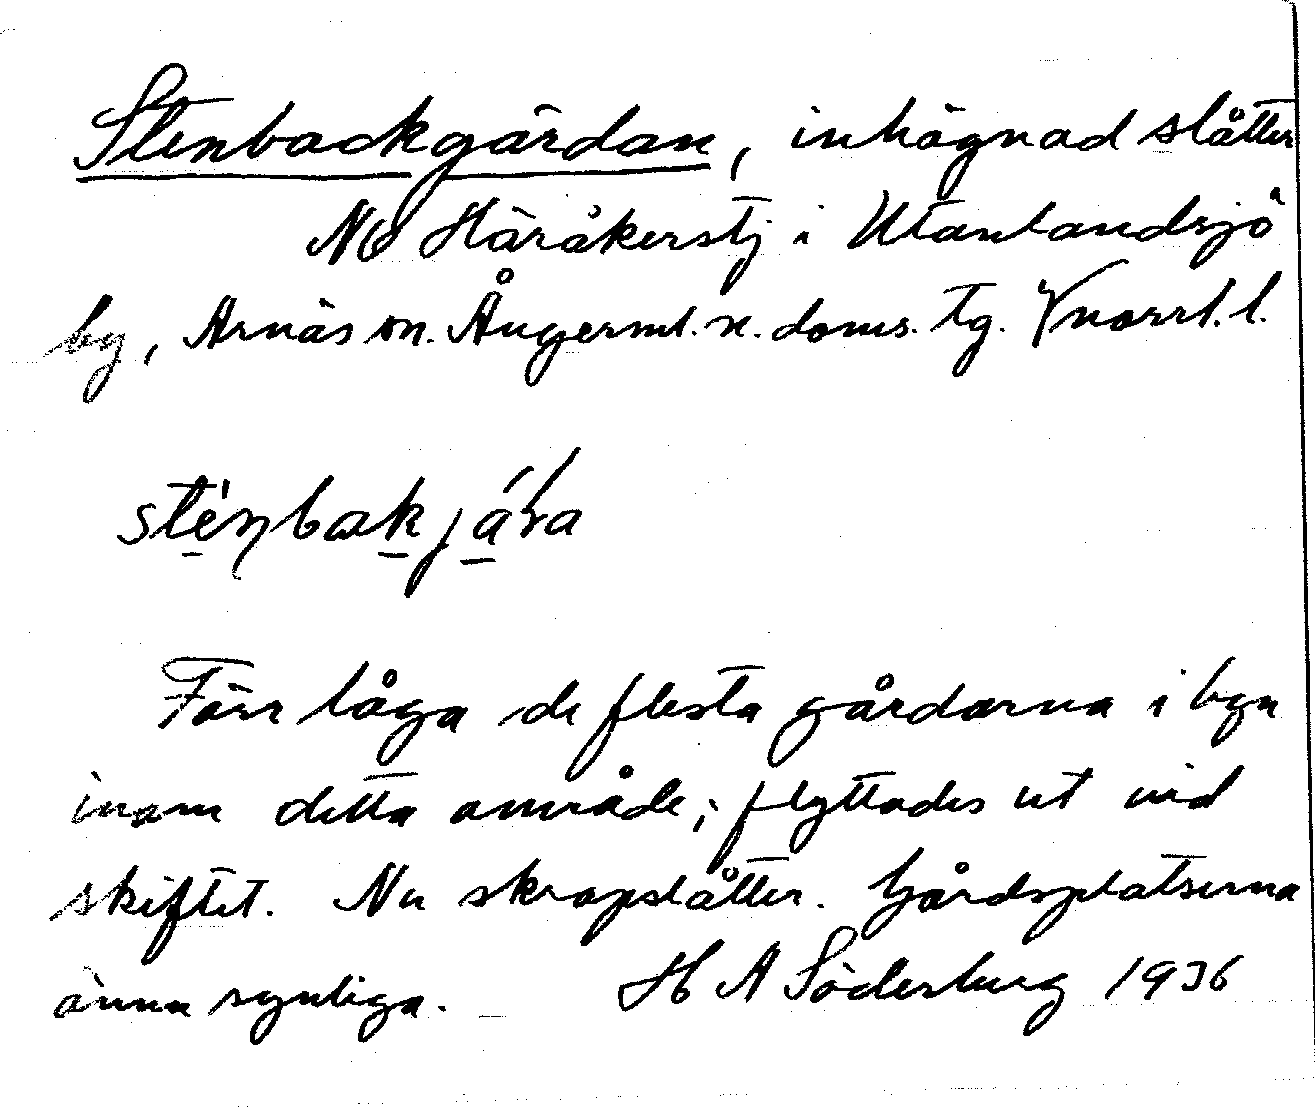 Stenbackgärdan, inhägnad slåtter
NO Häråkerstj i Utanlandsjö
by, Arnäs sn. Ångerml. n. doms. tg. Vnorrl. l.
Förr låga de flesta gårdarna i byn
inom detta område; flyttades ut vid
skiftet. Nu skrapslåtter. Gårdsplatserna
ännu synliga. H A Söderberg 1936